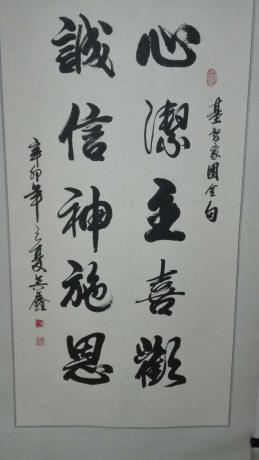 基督家園金句
心潔主喜歡
誠信神施恩
辛卯年之夏吳鑫